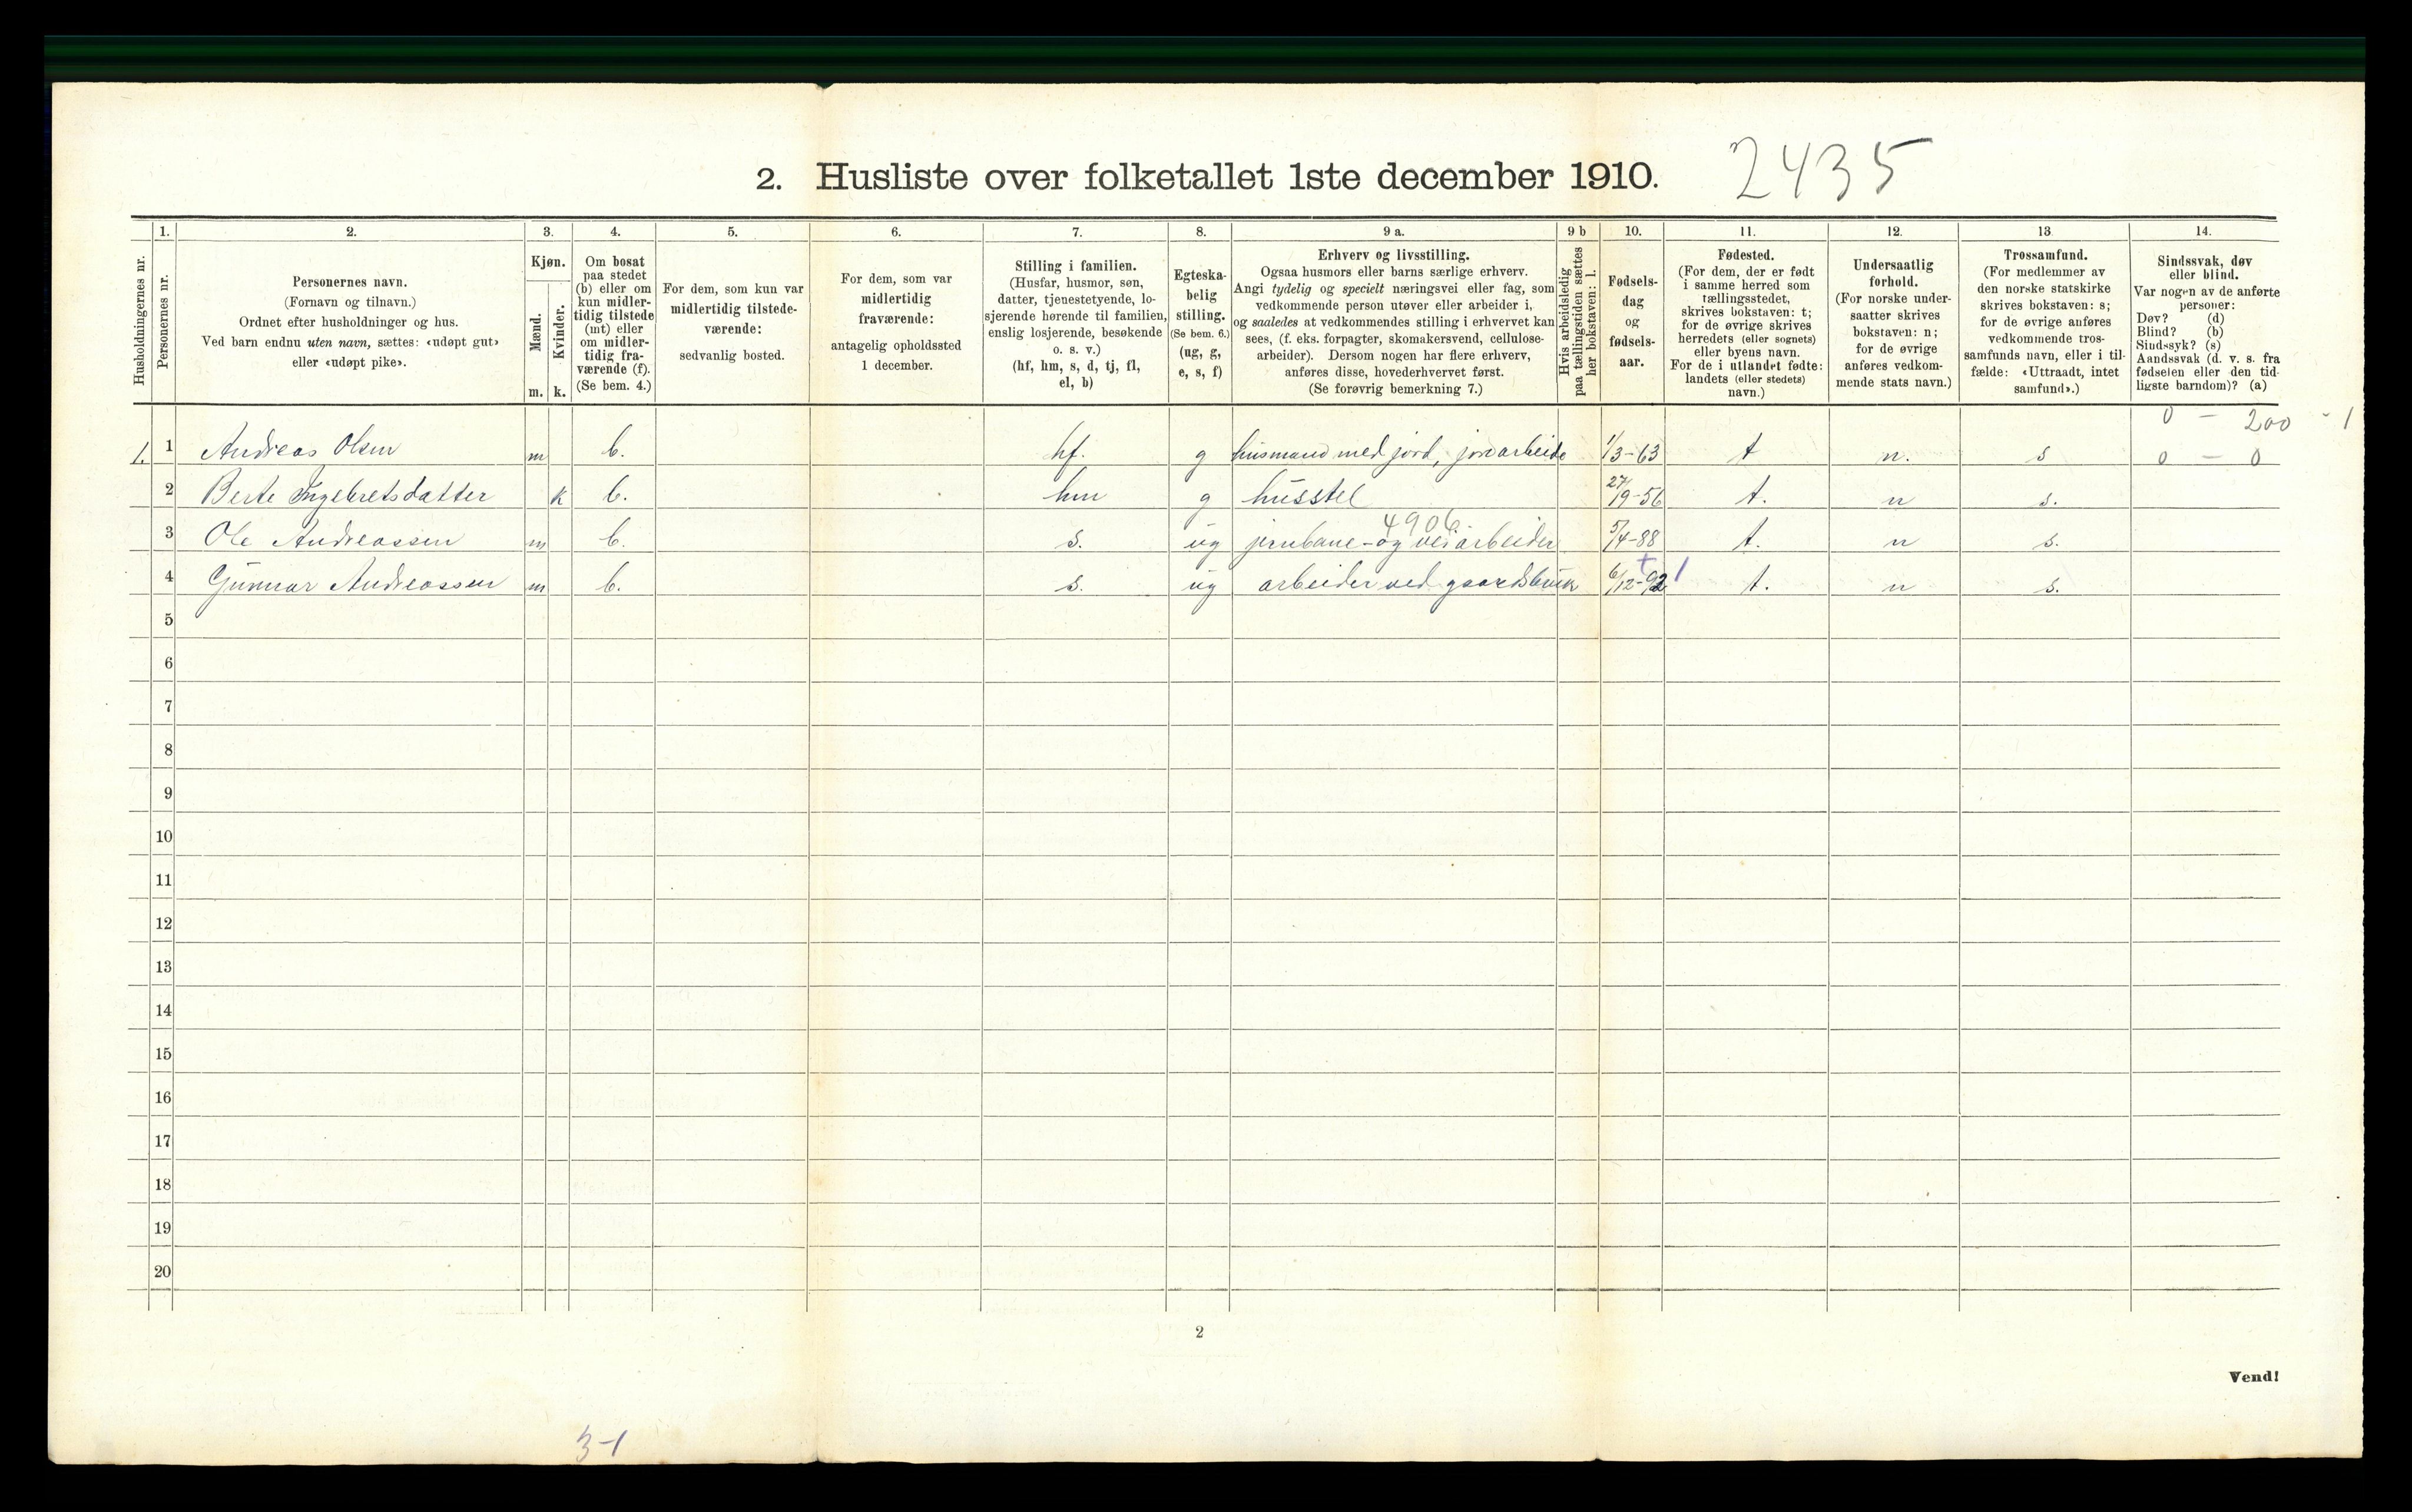 2. Husliste over folketallet 1ste december 1910. 2435
Husholdningernes nr.
1.
Personernes nr.
2.
Personernes navn.
(Fornavn og tilnavn.)
Ordnet efter husholdninger og hus.
Ved barn endnu uten navn, sættes: «udøpt gut»
eller «udøpt pike».
3.
Kjøn.
Mænd.
Kvinder.
m. k.
4.
Om bosat
paa stedet
(b) eller om
kun midler-
tidig tilstede
(mt) eller
om midler-
tidig fra-
værende (f).
(Se bem. 4.)
5.
For dem, som kun var
midlertidig tilstede-
værende:
sedvanlig bosted.
6.
For dem, som var
midlertidig
fraværende:
antagelig opholdssted
1 december.
7.
Stilling i familien.
(Husfar, husmor, søn,
datter, tjenestetyende, lo-
sjerende hørende til familien,
enslig losjerende, besøkende
o. s. v.)
(hf, hm, s, d, tj, fl,
el, b)
8.
Egteska-
belig
stilling.
(Se bem. 6.)
(ug, g,
e, s, f)
9 a.
Erhverv og livsstilling.
Ogsaa husmors eller barns særlige erhverv.
Angi tydelig og specielt næringsvei eller fag, som
vedkommende person utøver eller arbeider i,
og saaledes at vedkommendes stilling i erhvervet kan
sees, (f. eks. forpagter, skomakersvend, cellulose-
arbeider). Dersom nogen har flere erhverv,
anføres disse, hovederhvervet først.
(Se forøvrig bemerkning 7.)
9 b
Hvis arbeidsledig
paa tællingstiden sættes
her bokstaven: l.
10.
Fødsels-
dag
og
fødsels-
aar.
11.
Fødested.
(For dem, der er født
i samme herred som
tællingsstedet,
skrives bokstaven: t;
for de øvrige skrives
herredets (eller sognets)
eller byens navn.
For de i utlandet fødte:
landets (eller stedets)
navn.)
12.
Undersaatlig
forhold.
(For norske under-
saatter skrives
bokstaven: n;
for de øvrige
anføres vedkom-
mende stats navn.)
13
Trossamfund.
(For medlemmer av
den norske statskirke
skrives bokstaven: s;
for de øvrige anføres
vedkommende tros-
samfunds navn, eller i til-
fælde: «Uttraadt, intet
samfund».)
14.
Sindssvak, døv
eller blind.
Var nogen av de anførte
personer:
Døv? (d)
Blind? (b)
Sindssyk? (s)
Aandssvak (d. v. s. fra
fødselen eller den tid-
ligste barndom)? (a)
0 — 200 - 1
1. 1 Andreas Olsen m b. hf. g husmand med jord, jordarbeide 1/3-63 t n. s 0 — 0
2 Berte Ingebretsdatter k b. hm g husstel 27/9-56 t. n s.
4906
3 Ole Andreassen m b. s. ug jernbane- og veiarbeider 5/4-88 t. n s.
4 Gunnar Andreassen m b. s. ug arbeider ved gaardsbruk 6/12-92 1 t. n s.
5
6
7
8
9
10
11
12
13
14
15
16
17
18
19
20
2
Vend!
3-1